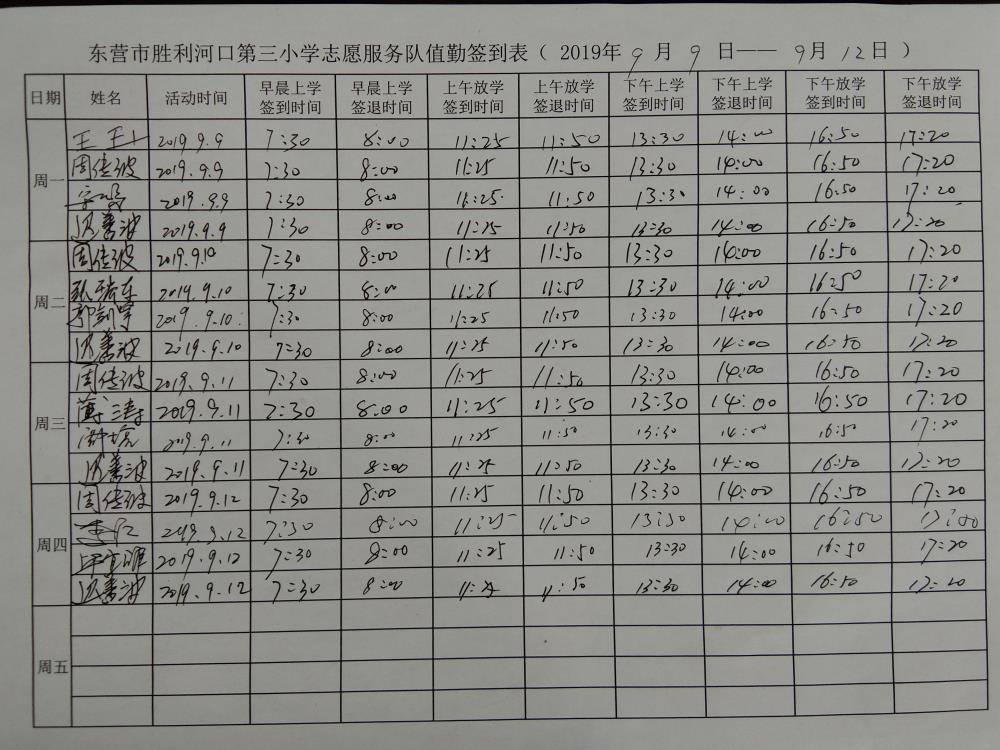 东营市胜利河口第三小学志愿服务队值勤签到表（ 2019年 9 月 9 日—— 9月 12日 ）
日期 姓名 活动时间 早晨上学签到时间 早晨上学签退时间 上午放学签到时间 上午放学签退时间 下午上学签到时间 下午上学签退时间 下午放学签到时间 下午放学签退时间
周一
2019.9.9 7:30 8:00 11:25 11:50 13:30 14:00 16:50 17:20
周佳波 2019.9.9 7:30 8:00 11:25 11:50 13:30 14:00 16:50 17:20
2019.9.9 7:30 8:00 11:25 11:50 13:30 14:00 16:50 17:20
2019.9.9 7:30 8:00 11:25 11:50 13:30 14:00 16:50 17:20
周二
周佳波 2019.9.10 7:30 8:00 11:25 11:50 13:30 14:00 16:50 17:20
2019.9.10 7:30 8:00 11:25 11:50 13:30 14:00 16:50 17:20
2019.9.10 7:30 8:00 11:25 11:50 13:30 14:00 16:50 17:20
2019.9.10 7:30 8:00 11:25 11:50 13:30 14:00 16:50 17:20
周三
周佳波 2019.9.11 7:30 8:00 11:25 11:50 13:30 14:00 16:50 17:20
薄涛 2019.9.11 7:30 8:00 11:25 11:50 13:30 14:00 16:50 17:20
2019.9.11 7:30 8:00 11:25 11:50 13:30 14:00 16:50 17:20
2019.9.11 7:30 8:00 11:25 11:50 13:30 14:00 16:50 17:20
周四
周佳波 2019.9.12 7:30 8:00 11:25 11:50 13:30 14:00 16:50 17:20
2019.9.12 7:30 8:00 11:25 11:50 13:30 14:00 16:50
2019.9.12 7:30 8:00 11:25 11:50 13:30 14:00 16:50 17:20
2019.9.12 7:30 8:00 11:25 11:50 13:30 14:00 16:50 17:20
周五